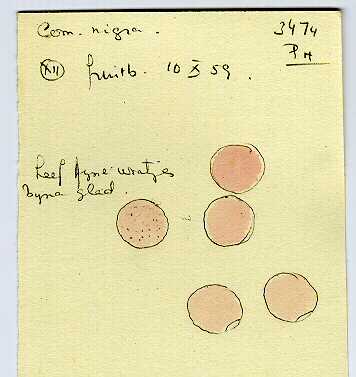 Com. nigra.
3474
PH
XII fruitb. 10 X 59.
heel fyne wratjes
byna glad.